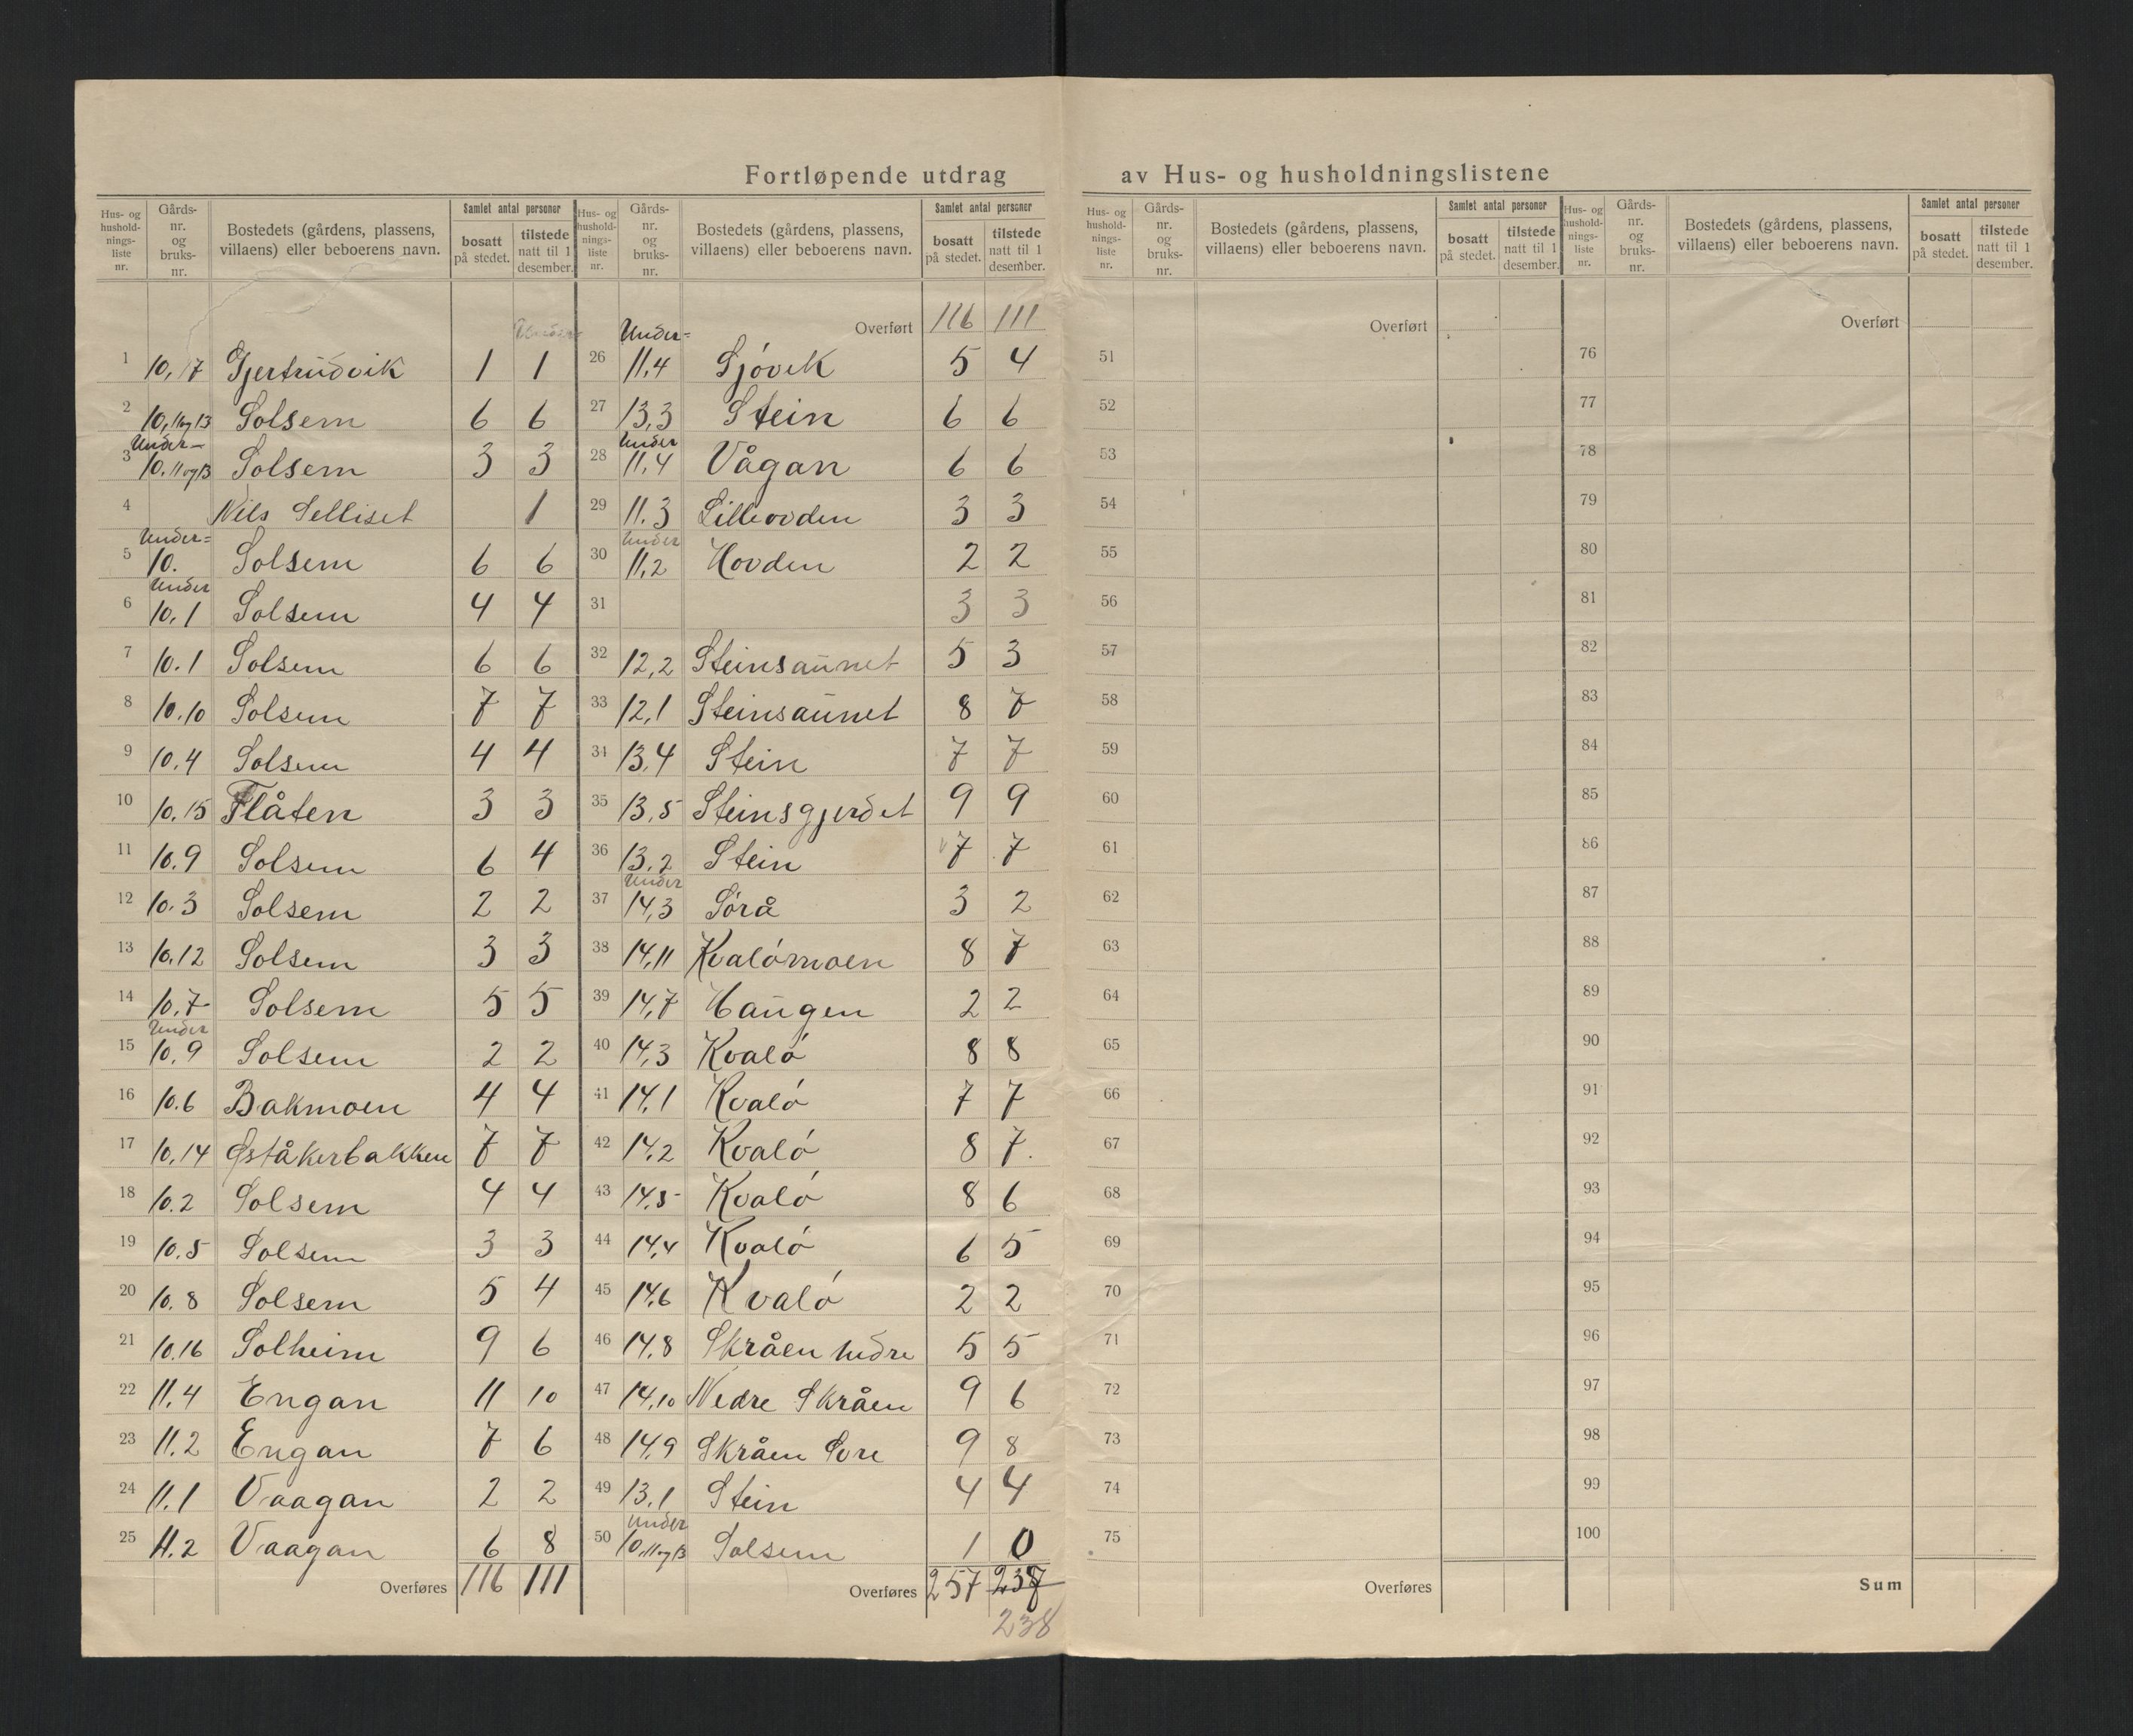 Fortløpende utdrag av Hus- og husholdningslistene
Hus- og hushold-nings-liste nr. Gårds-nr. og bruks-nr. Bostedets (gårdens, plassens, villaens) eller beboerens navn. Samlet antal personer bosatt på stedet. tilstede natt til 1 desember.
1 10,17 Gjertrudvik 1 1
2 10,11og13 Solsem 6 6
3 Under- 10.11og13 Solsem 3 3
4 Nils Selliset 1
5 Under= 10. Solsem 6 6
6 Under 10.1 Solsem 4 4
7 10.1 Solsem 6 6
8 10.10 Solsem 7 7
9 10.4 Solsem 4 4
10 10.15 Flåten 3 3
11 10.9 Solsem 6 4
12 10.3 Solsem 2 2
13 10.12 Solsem 3 3
14 10.7 Solsem 5 5
15 Under 10.9 Solsem 2 2
16 10.6 Bakmoen 4 4
17 10.14 Øståkerbakken 7 7
18 10.2 Solsem 4 4
19 10.5 Solsem 3 3
20 10.8 Solsem 5 4
21 10.16 Solheim 9 6
22 11.4 Engan 11 10
23 11.2 Engan 7 6
24 11.1 Vaagan 2 2
25 11.2 Vaagan 6 8
Overføres 116 111
Hus- og hushold-nings-liste nr. Gårds-nr. og bruks-nr. Bostedets (gårdens, plassens, villaens) eller beboerens navn. Samlet antal personer bosatt på stedet. tilstede natt til 1 desember.
Overført 116 111
26 Under= 11,4 Sjóvik 5 4
27 13,3 Stein 6 6
28 Under 11,4 Vågan 6 6
29 11.3 Lilleovden 3 3
30 Under 11,2 Hovden 2 2
31 3 3
32 12,2 Steinsaunet 5 3
33 12,1 Steinsaunet 8 7
34 13.4 Stein 7 7
35 13.5 Steinsgjerdet 9 9
36 13.2 Stein 7 7
37 Under 14,3 Sórå 3 2
38 14,11 Kvalómoen 8 7
39 14,7 Haugen 2 2
40 14,3 Kvaló 8 8
41 14,1 Kvaló 7 7
42 14.2 Kvaló 8 7.
43 14.5 Kvaló 8 6
44 14,4 Kvaló 6 5
45 14,6 Kvaló 2 2
46 14.8 Skråen nedre 5 5
47 14,10 Nedre Skråen 9 6
48 14,9 Skråen Óvre 9 8
49 13,1 Stein 4 4
50 Under 10,11og13 Solsem 1 0
Overføres 257 237
238
Hus- og hushold-nings-liste nr. Gårds-nr. og bruks-nr. Bostedets (gårdens, plassens, villaens) eller beboerens navn. Samlet antal personer bosatt på stedet. tilstede natt til 1 desember.
Overført
51
52
53
54
55
56
57
58
59
60
61
62
63
64
65
66
67
68
69
70
71
72
73
74
75
Overføres
Hus- og hushold-nings-liste nr. Gårds-nr. og bruks-nr. Bostedets (gårdens, plassens, villaens) eller beboerens navn. Samlet antal personer bosatt på stedet. tilstede natt til 1 desember.
Overført
76
77
78
79
80
81
82
83
84
85
86
87
88
89
90
91
92
93
94
95
96
97
98
99
100
Sum